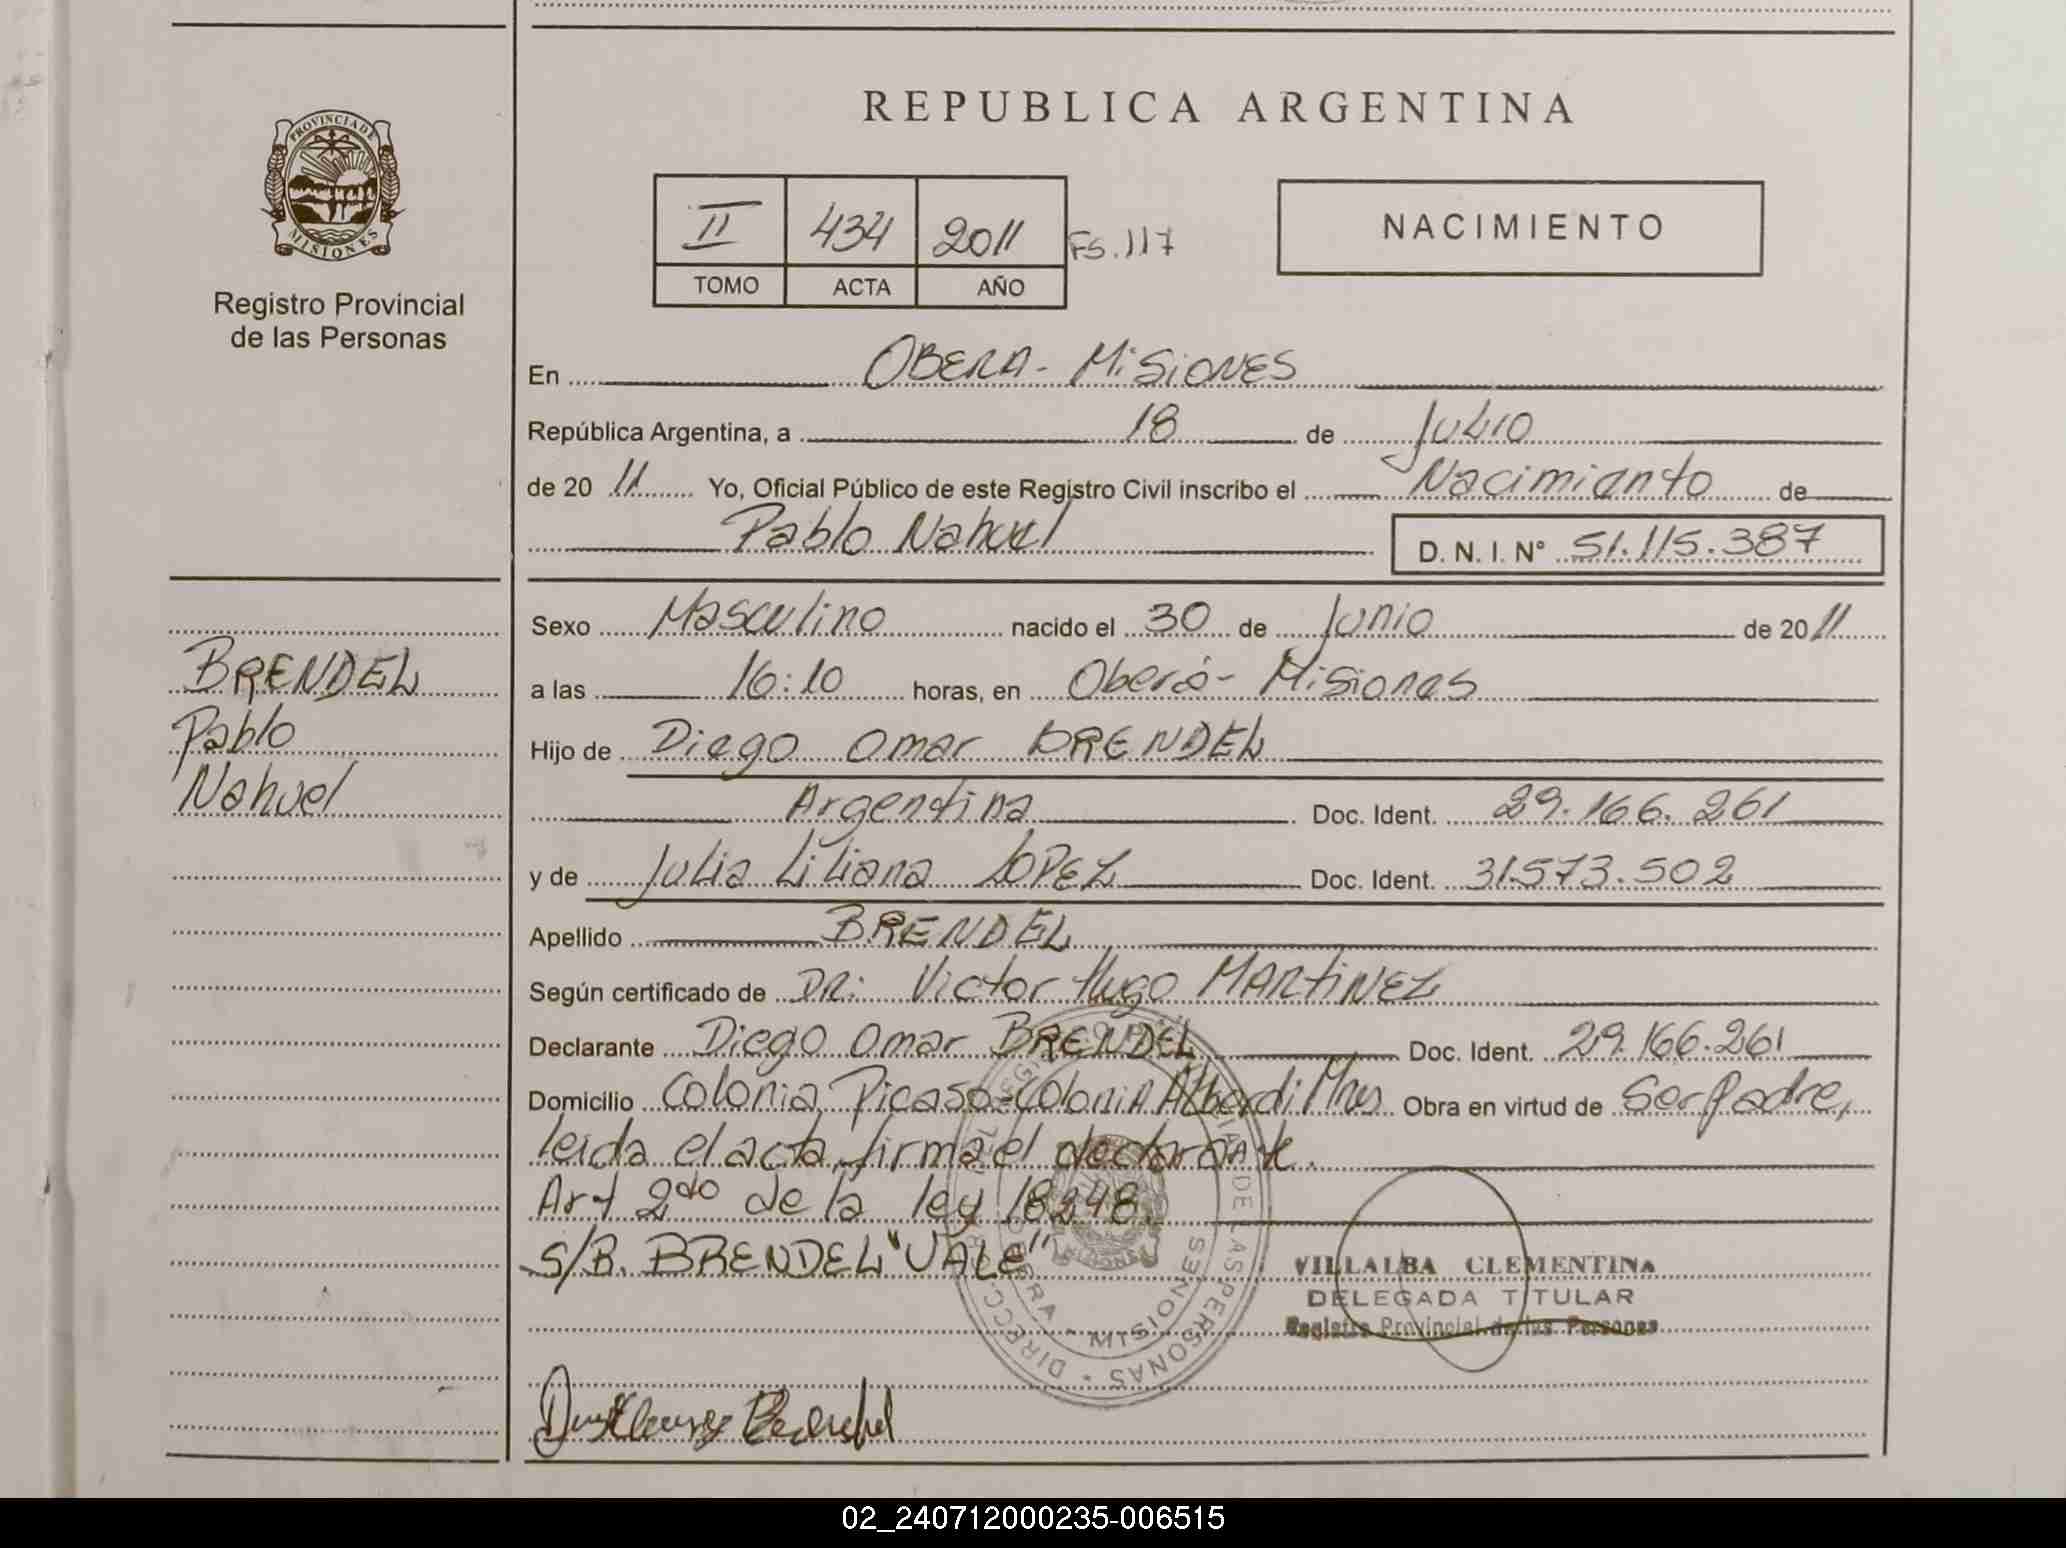 REPUBLICA ARGENTINA
PROVINCIA DE
MISIONES
Registro Provincial
de las Personas
II 434 2011 Fs. 117
TOMO ACTA AÑO
NACIMIENTO
En OBERA - MISIONES
República Argentina, a 18 de Julio
de 20 11 Yo, Oficial Público de este Registro Civil inscribo el Nacimiento de
Pablo Nahuel D. N. I. N° 51.115.387
BRENDEL
Pablo
Nahuel
Sexo Masculino nacido el 30 de Junio de 20 11
a las 16:10 horas, en Oberá - Misiones
Hijo de Diego Omar BRENDEL
Argentina Doc. Ident. 29.166.261
y de Julia Liliana LOPEZ Doc. Ident. 31.573.502
Apellido BRENDEL
Según certificado de DR: Victor Hugo MARTINEZ
Declarante Diego Omar BRENDEL Doc. Ident. 29.166.261
Domicilio Colonia Picaso - Colonia Alberdi Mnes Obra en virtud de Ser Padre,
leida el acta, firma el declarante.
Art 2do de la ley 18248.
S/B. BRENDEL "VALE"
VILLALBA CLEMENTINA
DELEGADA TITULAR
Registro Provincial de las Personas
OBERA - MISIONES
DE LAS PERSONAS
02_240712000235-006515